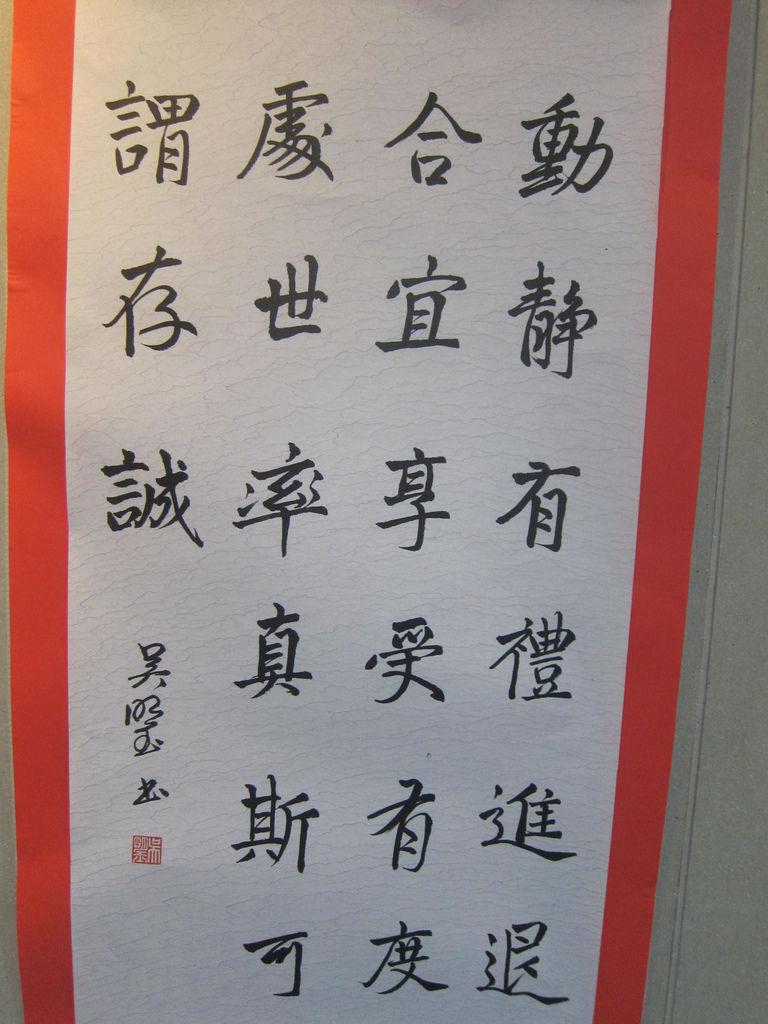 動靜有禮進退
合宜享受有度
處世率真斯可
謂存誠
吳明璗書